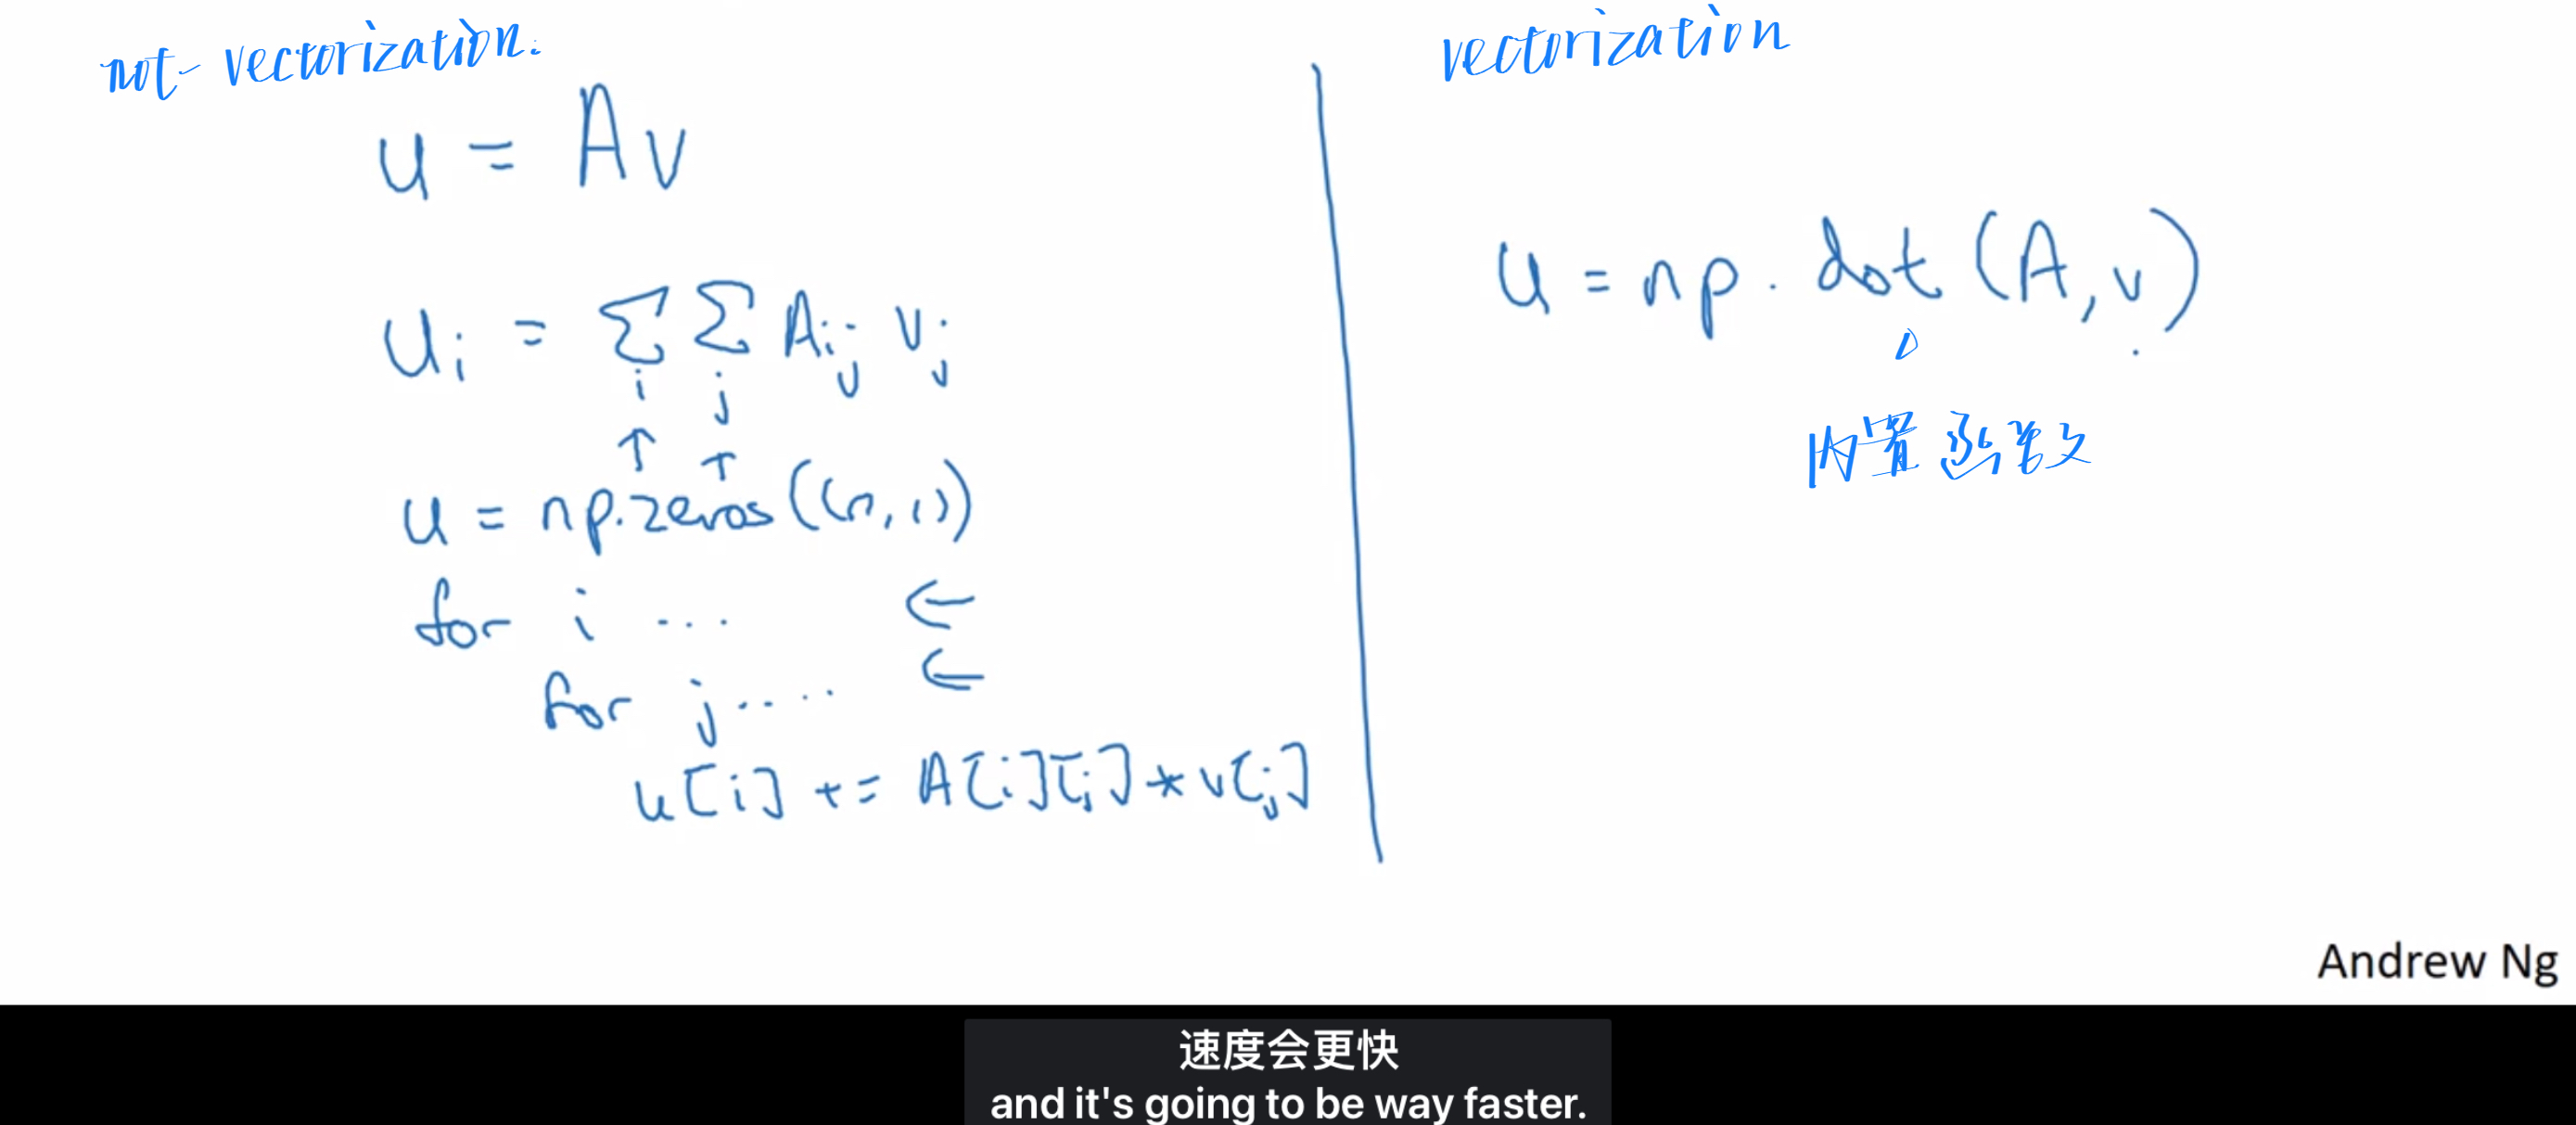 not-vectorization.
u = Av
uᵢ = Σᵢ Σⱼ Aᵢⱼ vⱼ
↑ ↑
u = np.zeros((n,1))
for i ... ←
for j .... ←
u[i] += A[i][j] * v[j]
vectorization
u = np.dot(A,v)
内置函数
Andrew Ng
速度会更快
and it's going to be way faster.